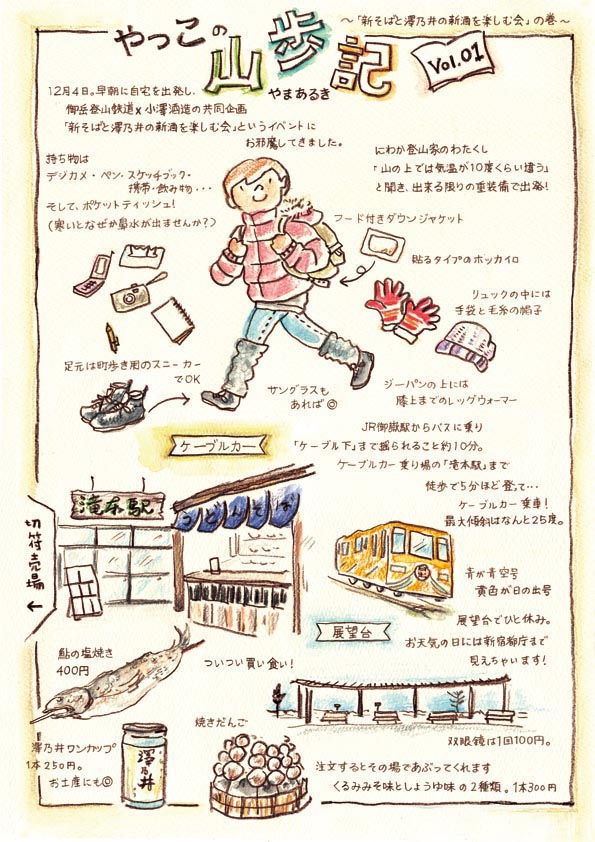 〜「新そばと澤乃井の新酒を楽しむ会」の巻〜
やっこの
山歩記
やまあるき
Vol.01
12月4日。早朝に自宅を出発し、
御岳登山鉄道×小澤酒造の共同企画
「新そばと澤乃井の新酒を楽しむ会」というイベントに
お邪魔してきました。
持ち物は
デジカメ・ペン・スケッチブック・
携帯・飲み物・・・
そして、ポケットティッシュ!
(寒いとなぜか鼻水が出ませんか?)
にわか登山家のわたくし
「山の上では気温が10度くらい違う」
と聞き、出来る限りの重装備で出発!
フード付きダウンジャケット
貼るタイプのホッカイロ
リュックの中には
手袋と毛糸の帽子
足元は町歩き用のスニーカー
でOK
サングラスも
あれば◎
ジーパンの上には
膝上までのレッグウォーマー
ケーブルカー
JR御嶽駅からバスに乗り
「ケーブル下」まで揺られること約10分。
ケーブルカー乗り場の「滝本駅」まで
徒歩で5分ほど登って・・・
ケーブルカー乗車!
最大傾斜はなんと25度。
滝本駅
うどんそば
切符売場
←
青が青空号
黄色が日の出号
展望台
展望台でひと休み。
お天気の日には新宿都庁まで
見えちゃいます!
鮎の塩焼き
400円
ついつい買い食い!
澤乃井ワンカップ
1本250円。
お土産にも◎
澤乃井
焼きだんご
双眼鏡は1回100円。
注文するとその場であぶってくれます
くるみみそ味としょうゆ味の2種類。1本300円